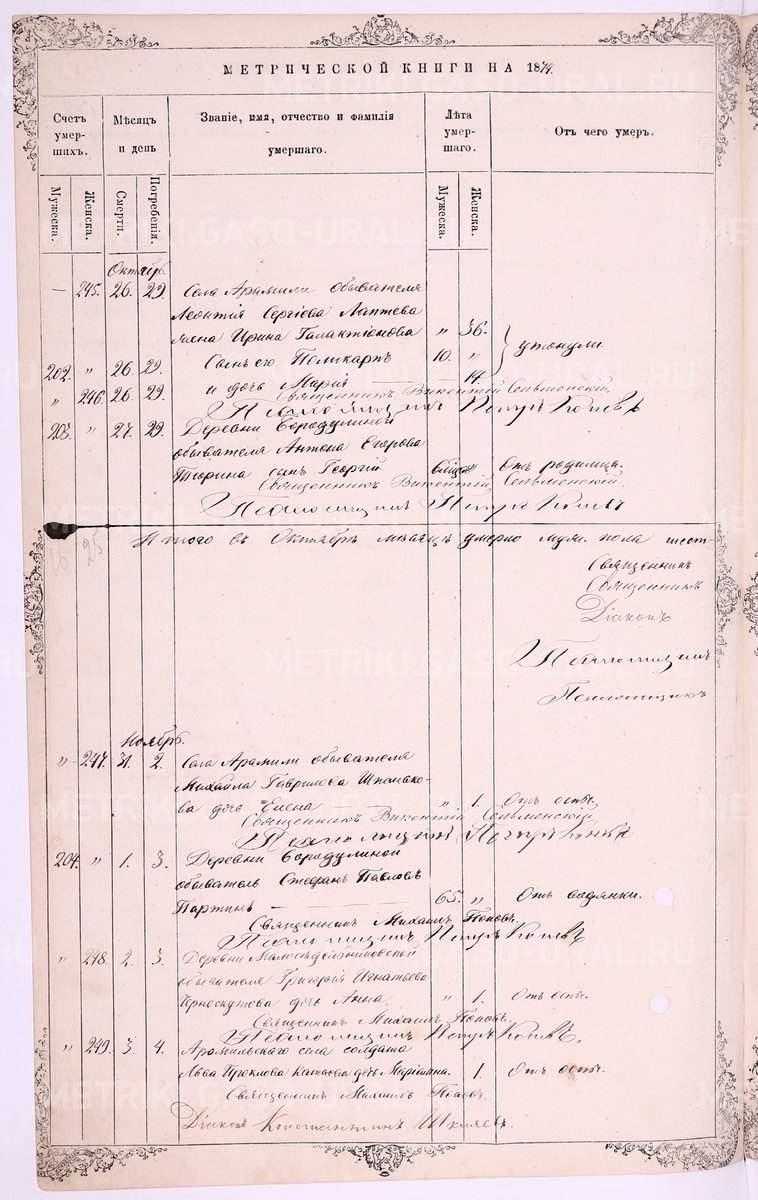 МЕТРИЧЕСКОЙ КНИГИ НА 1874.
Счетъ умер-шихъ.
Мѣсяцъ и день
Званіе, имя, отчество и фамилія умершаго.
Лѣта умер-шаго.
Отъ чего умеръ.
Мужеска. Женска. Смерти. Погребенія. Мужеска. Женска.
Октябрь
— 245. 26. 29. Села Арамили обывателя
Леонтія Сергіева Лаптева
жена Ирина Галактіонова „ 36.
утонули
202. „ 26. 29. Сынъ его Поликарпъ 10. „
„ 246. 26. 29. и дочь Марія 14.
Священникъ Викентій
Псаломщикъ Петръ
203. „ 27. 29. Деревни Бородулиной
обывателя Антона Егорова
Тюрина сынъ Георгій Отъ родимца.
Священникъ Викентій
Псаломщикъ Петръ
Итого въ Октябрѣ мѣсяцѣ умерло муж. пола шест-
16 25
Священникъ
Священникъ
Діаконъ
Псаломщикъ
Псаломщикъ
Ноябрь.
„ 247. 31. 2. Села Арамили обывателя
Михаила Гаврилова Шпомако-
ва дочь Елена „ 1. Отъ оспы.
Священникъ Викентій
Псаломщикъ Петръ
204. „ 1. 3. Деревни Бородулиной
обыватель Стефанъ Павловъ
Партинъ 65. „ Отъ водянки.
Священникъ Михаилъ Поповъ.
Псаломщикъ Петръ
„ 248. 2. 3. Деревни
обывателя Григорія Игнатьева
Черноскутова дочь Анна „ 1. Отъ оспы.
Священникъ Михаилъ Поповъ.
Псаломщикъ Петръ
„ 249. 3. 4. Арамильскаго села солдата
Льва дочь 1 Отъ оспы.
Священникъ Михаилъ Поповъ.
Діаконъ Константинъ